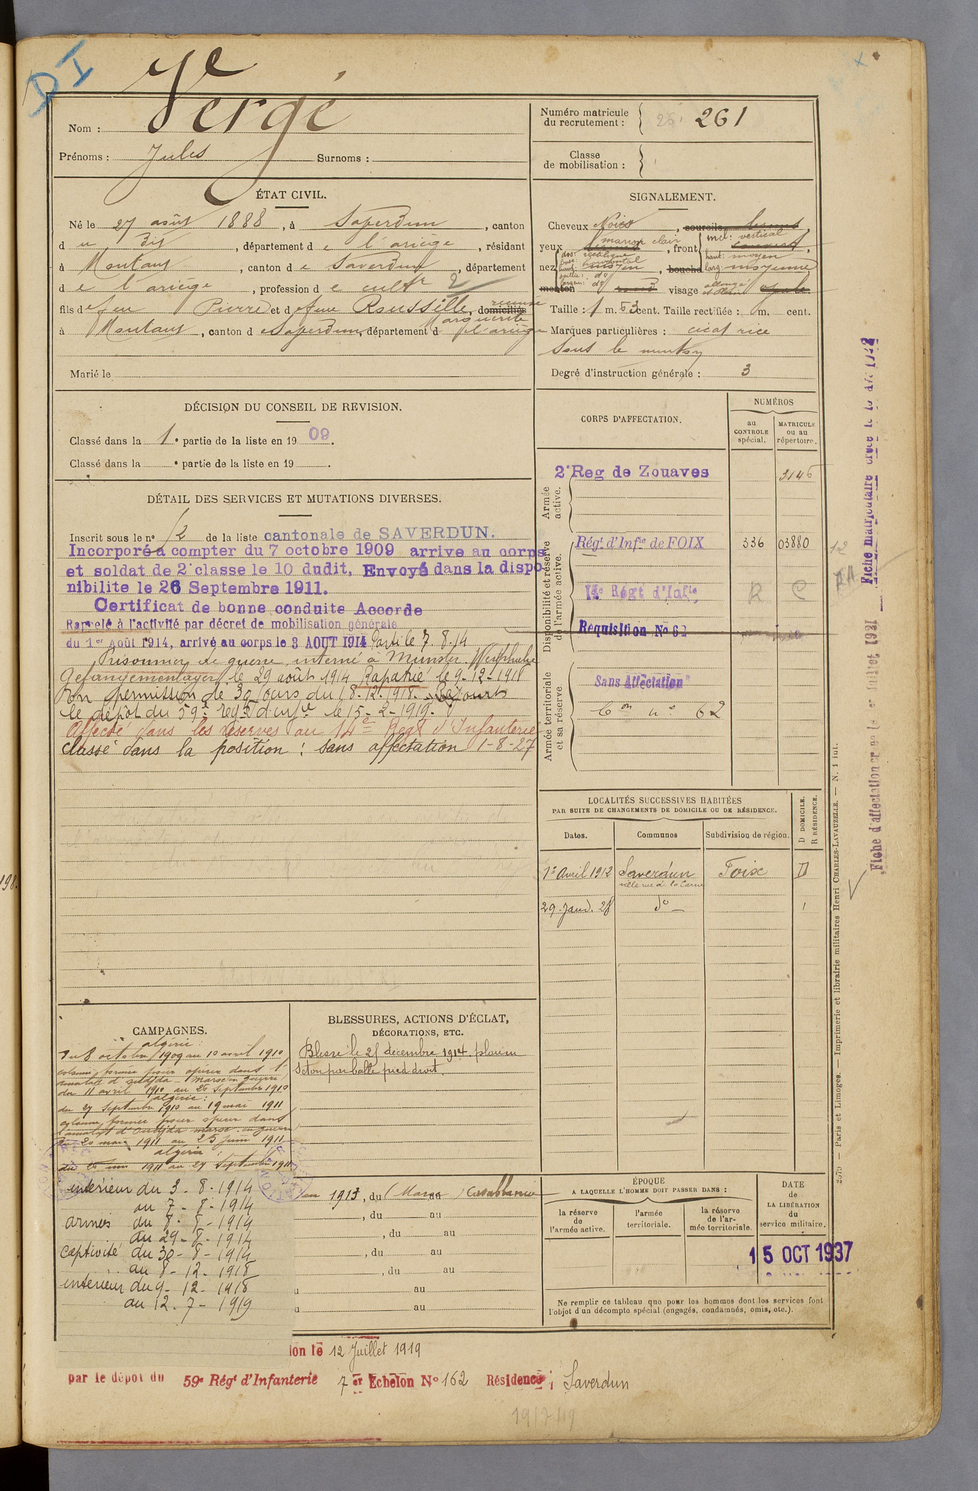 DI
Nom : Vergé
Prénoms : Jules Surnoms :
Numéro matricule du recrutement : 261
Classe de mobilisation :
ÉTAT CIVIL.
Né le 27 août 1888, à Saverdun, canton
du dit, département de l'ariège, résidant
à Montaut, canton de Saverdun, département
de l'ariège, profession de cultr 2
fils de feu Pierre et de feue Roussille, domiciliés
à Montaut, canton de Saverdun, département de l'ariège
Marié le
SIGNALEMENT.
Cheveux Noirs, sourcils
yeux maron clair, front incl: vertical
haut: moyen
nez dos: rectiligne, bouche larg: moyenne
base: horizontal
menton visage allongé
Taille : 1 m. 53 cent. Taille rectifiée : m. cent.
Marques particulières : cicatrice
sous le menton
Degré d'instruction générale : 3
DÉCISION DU CONSEIL DE REVISION.
Classé dans la 1e partie de la liste en 1909.
Classé dans la e partie de la liste en 19 .
DÉTAIL DES SERVICES ET MUTATIONS DIVERSES.
Inscrit sous le no 12 de la liste cantonale de SAVERDUN.
Incorporé à compter du 7 octobre 1909 arrive au corps
et soldat de 2e classe le 10 dudit, Envoyé dans la dispo-
nibilite le 26 Septembre 1911.
Certificat de bonne conduite Accorde
Rappelé à l'activité par décret de mobilisation générale
du 1er août 1914, arrivé au corps le 3 AOUT 1914 Parti le 7.8.14
Prisonnier de guerre interné à Munster Westphalie
Gefangenenlager le 29 août 1914 Rapatrié le 9-12-1918
En permission de 30 jours du 18.12.1918.
le dépôt du 59e regt d'infie le 15-2-1919.
Affecté dans les réserves au 14e Regt d'Infanterie
Classé dans la position : sans affectation 1-8-27
CORPS D'AFFECTATION.
NUMÉROS
au CONTROLE spécial.
MATRICULE ou au répertoire.
Armée active.
2e Reg de Zouaves 3146
Disponibilité et réserve de l'armée active.
Régt d'Infie de FOIX 336 03880
14e Régt d'Infie R C
Requisition No 62
Armée territoriale et sa réserve
Sans Affectation
Con no 62
LOCALITÉS SUCCESSIVES HABITÉES
PAR SUITE DE CHANGEMENTS DE DOMICILE OU DE RÉSIDENCE.
Dates. Communes Subdivision de région. D DOMICILE. R RÉSIDENCE.
1er Avril 1912 Saverdun Foix D
29 Janv. 28 do
CAMPAGNES.
algérie :
du 8 octobre 1909 au 10 avril 1910
colonne formée pour opérer dans
l'amalat d'oudjda - maroc en guerre
du 11 avril 1910 au 26 septembre 1910
algérie :
du 27 septembre 1910 au 19 mai 1911
colonne formée pour opérer dans
l'amalat d'oudjda maroc en guerre
du 20 mai 1911 au 25 juin 1911
algérie :
du 26 juin 1911 au 27 septembre 1911
intérieur du 3-8-1914
au 7-8-1914
armées du 8-8-1914
au 29-8-1914
captivité du 30-8-1914
au 8-12-1918
intérieur du 9-12-1918
au 12-7-1919
BLESSURES, ACTIONS D'ÉCLAT,
DÉCORATIONS, ETC.
Blessé le 25 décembre 1914. plaie en
seton par balle pied droit.
en 1913, du (Maroc) Casablanca
, du au
, du au
, du au
, du au
au
au
ÉPOQUE
A LAQUELLE L'HOMME DOIT PASSER DANS :
la réserve de l'armée active. l'armée territoriale. la réserve de l'armée territoriale.
DATE de LA LIBÉRATION du service militaire.
15 OCT 1937
Ne remplir ce tableau que pour les hommes dont les services font
l'objet d'un décompte spécial (engagés, condamnés, omis, etc.).
ion le 12 Juillet 1919
par le dépôt du 59e Régt d'Infanterie 7er Echelon No 162 Résidence : Saverdun
Fiche d'affectation créée le 1er Juillet 1931 Fiche matriculaire
Paris et Limoges. — Imprimerie et librairie militaires Henri CHARLES-LAVAUZELLE. — N. 1 int.
198.